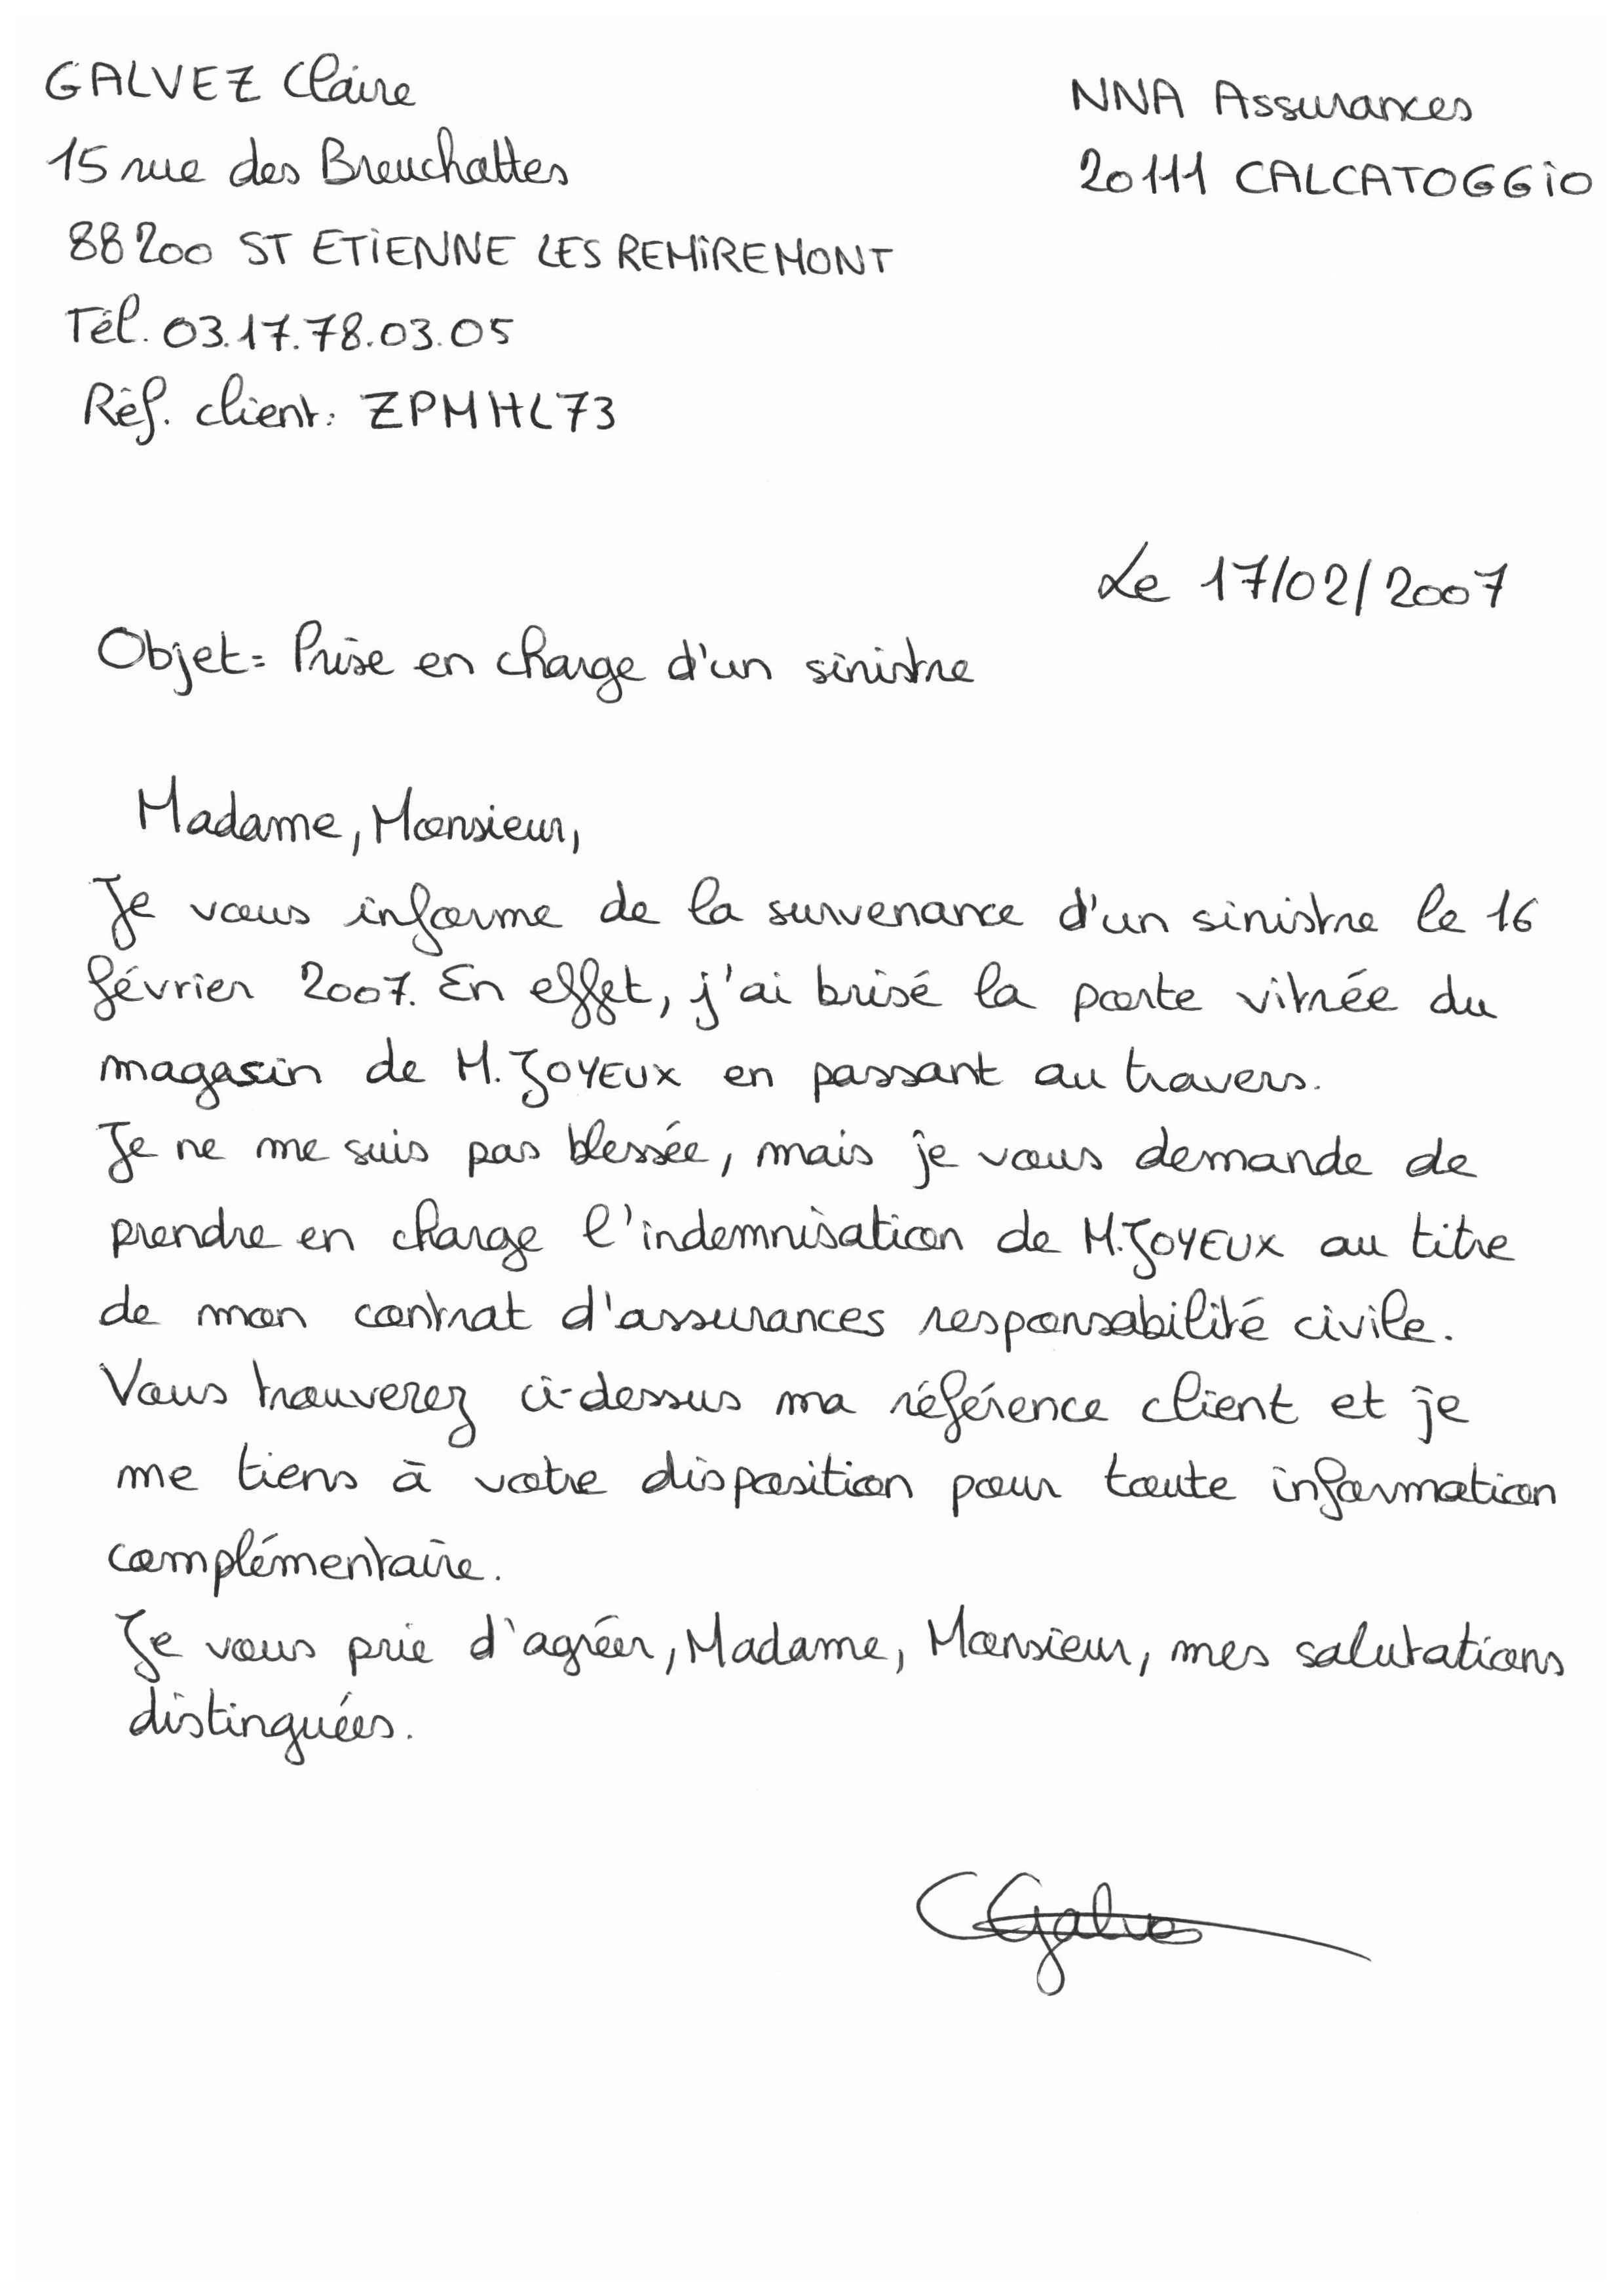 GALVEZ Claire
15 rue des Breuchattes
88200 ST ETIENNE LES REMIREMONT
Tél. 03.17.78.03.05
Réf. client: ZPMHL73
NNA Assurances
20111 CALCATOGGIO
Le 17/02/2007
Objet: Prise en charge d'un sinistre
Madame, Monsieur,
Je vous informe de la survenance d'un sinistre le 16
février 2007. En effet, j'ai brisé la porte vitrée du
magasin de M. JOYEUX en passant au travers.
Je ne me suis pas blessée, mais je vous demande de
prendre en charge l'indemnisation de M. JOYEUX au titre
de mon contrat d'assurances responsabilité civile.
Vous trouverez ci-dessus ma référence client et je
me tiens à votre disposition pour toute information
complémentaire.
Je vous prie d'agréer, Madame, Monsieur, mes salutations
distinguées.
CGalvez